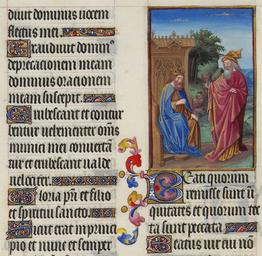 divit dominus vocem
fletus mei.
Exaudivit domin⁹
deprecationem meam
dominus orationem
meam suscepit.
Erubescant et contur
bentur vehementer om̄s
inimici mei convertā
tur et erubescant valde
velociter.
Gloria pri et filio
et spiritui sancto.
Sicut erat in princi
pio et nunc et semper
Beati quorum
remisse sunt ini
quitates et quorum tec
ta sunt peccata.
Beatus vir cui nō